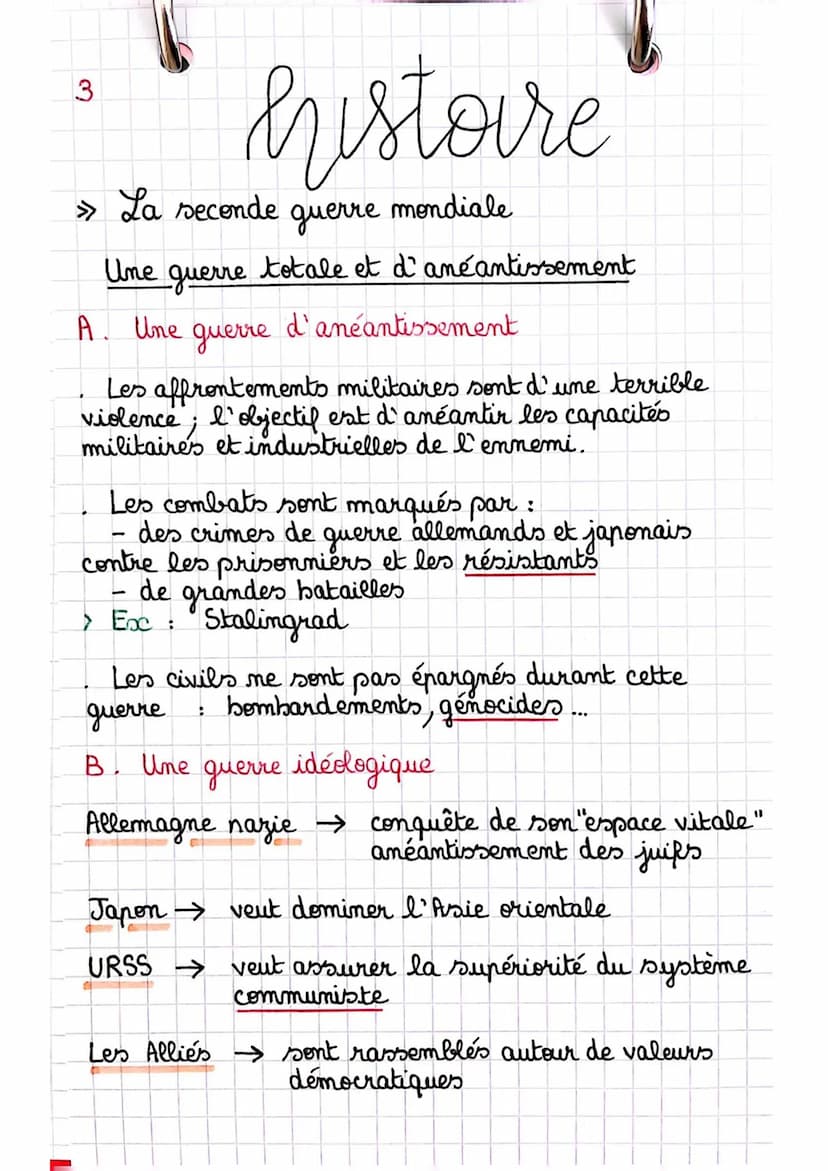 3
histoire
» La seconde guerre mondiale
Une guerre totale et d'anéantissement
A. Une guerre d'anéantissement
. Les affrontements militaires sont d'une terrible
violence ; l'objectif est d'anéantir les capacités
militaires et industrielles de l'ennemi.
. Les combats sont marqués par :
- des crimes de guerre allemands et japonais
contre les prisonniers et les résistants
- de grandes batailles
> Ex : Stalingrad
. Les civils ne sont pas épargnés durant cette
guerre : bombardements, génocides ...
B. Une guerre idéologique
Allemagne nazie → conquête de son "espace vitale"
anéantissement des juifs
Japon → veut dominer l'Asie orientale
URSS → veut assurer la supériorité du système
communiste
Les Alliés → sont rassemblés autour de valeurs
démocratiques